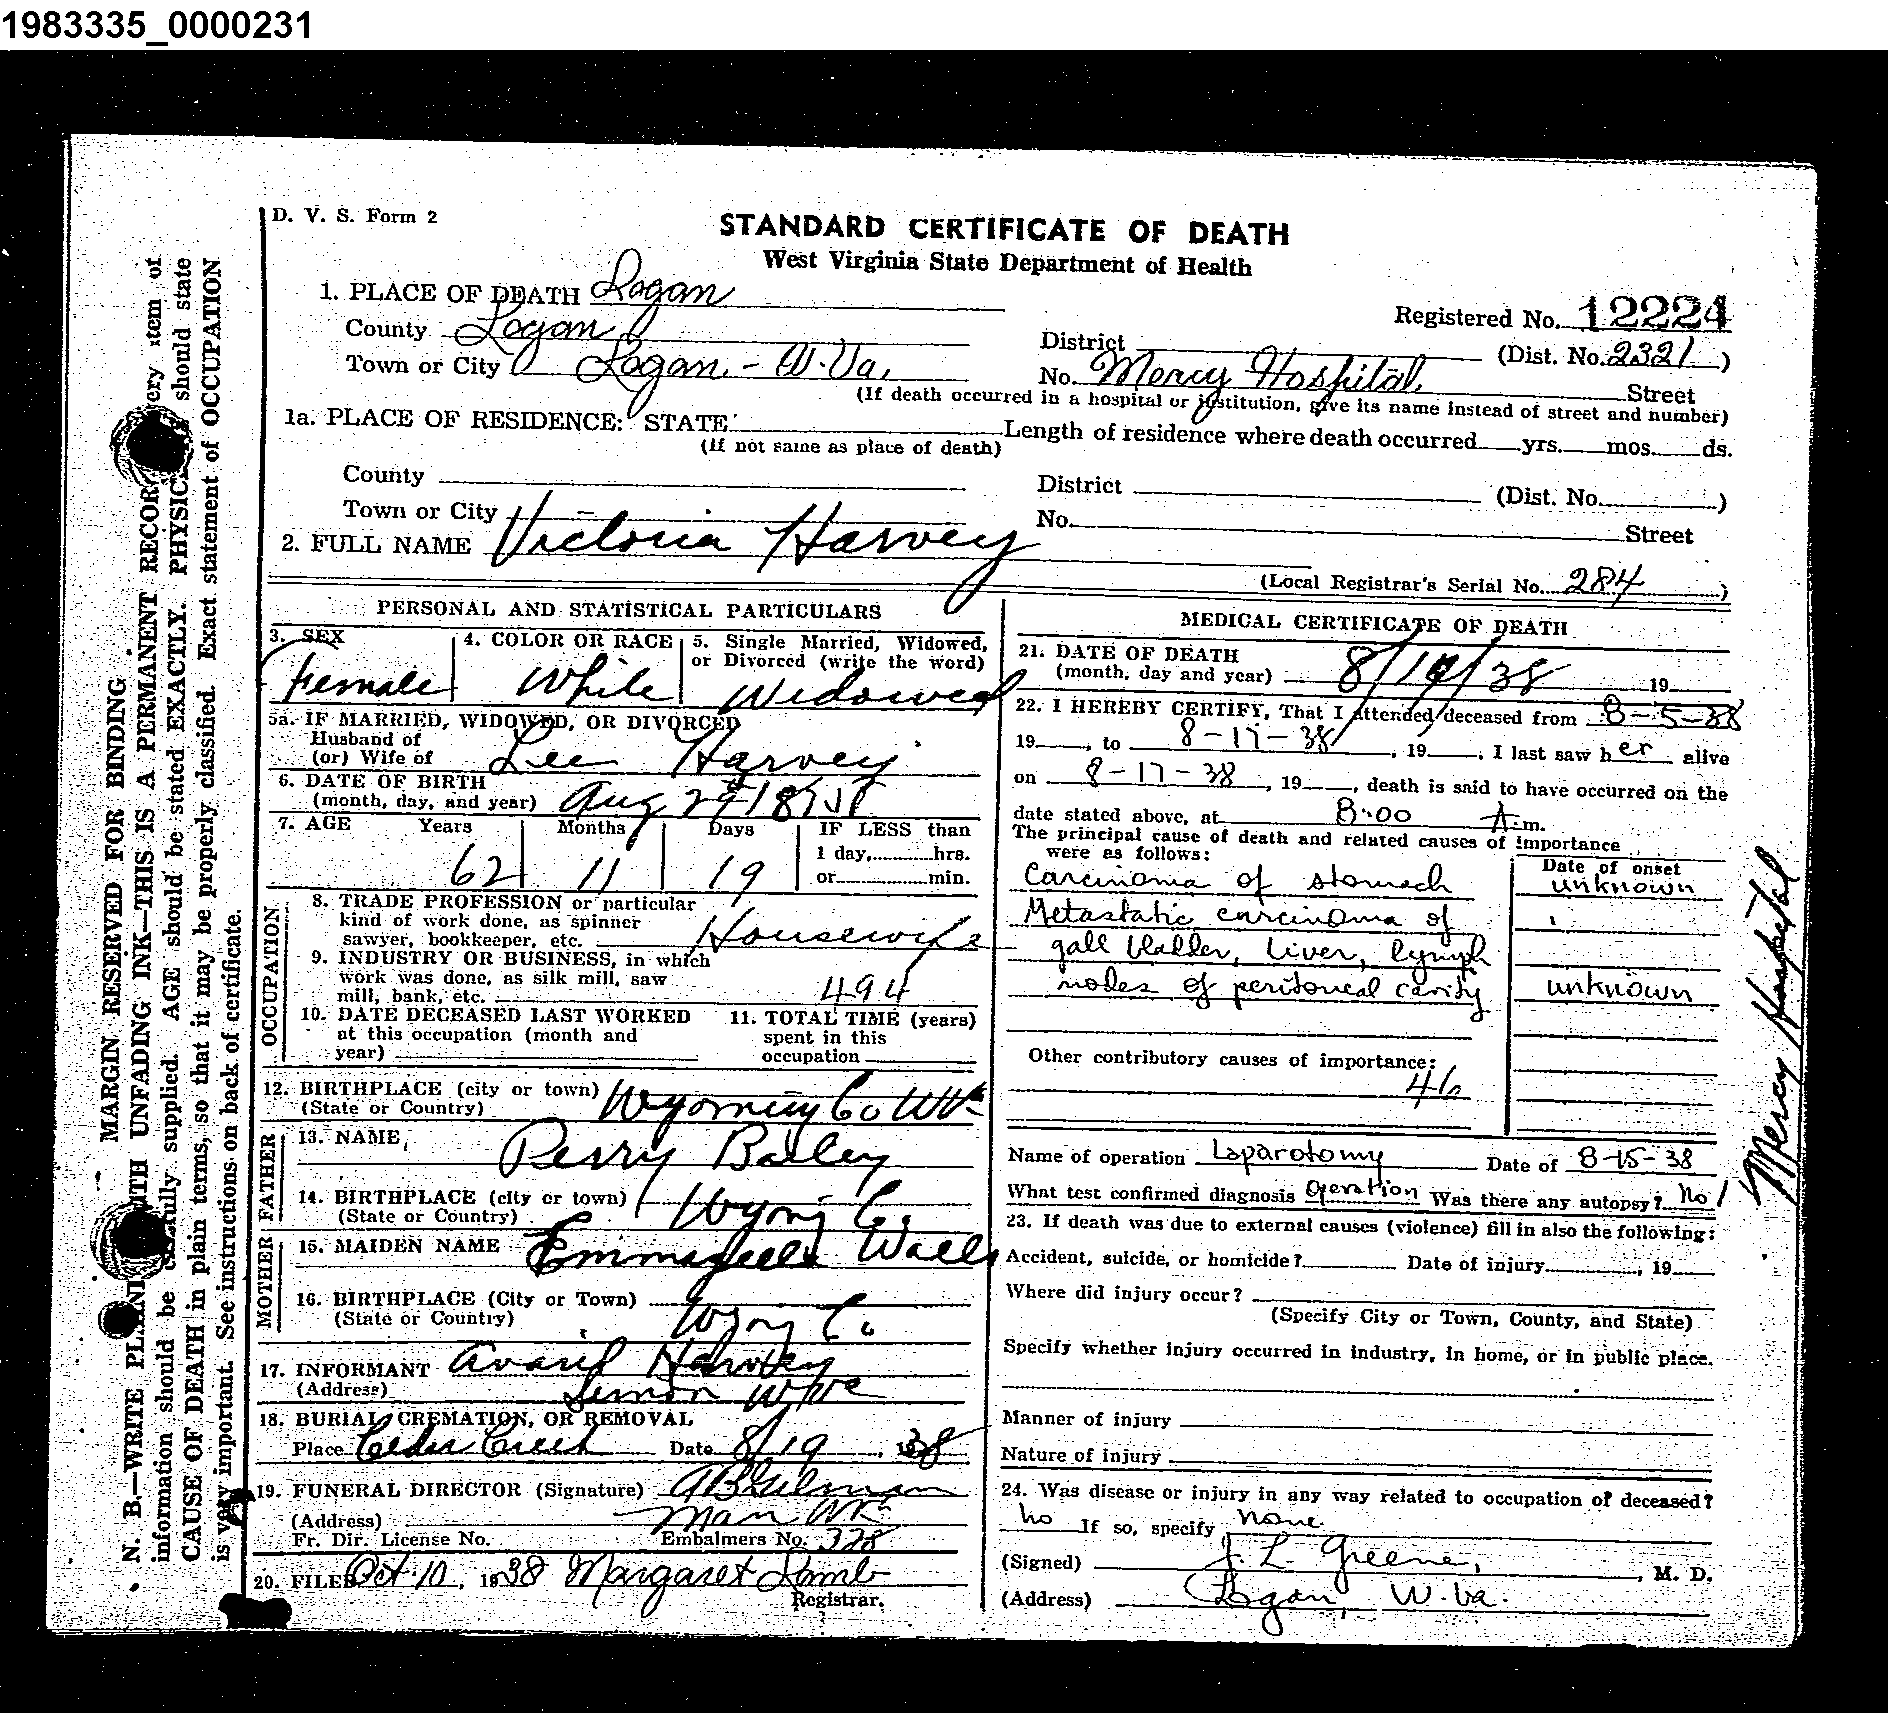 1983335_0000231
D. V. S. Form 2
STANDARD CERTIFICATE OF DEATH
West Virginia State Department of Health
1. PLACE OF DEATH Logan
County Logan
Town or City Logan - W.Va.
Registered No. 12224
District (Dist. No. 2321)
No. Mercy Hospital Street
(If death occurred in a hospital or institution, give its name instead of street and number)
1a. PLACE OF RESIDENCE: STATE
(If not same as place of death)
Length of residence where death occurred yrs. mos. ds.
County
District (Dist. No. )
Town or City
No. Street
2. FULL NAME Victoria Harvey
(Local Registrar's Serial No. 284 )
PERSONAL AND STATISTICAL PARTICULARS
3. SEX
Female
4. COLOR OR RACE
White
5. Single Married, Widowed,
or Divorced (write the word)
Widowed
5a. IF MARRIED, WIDOWED, OR DIVORCED
Husband of
(or) Wife of Lee Harvey
6. DATE OF BIRTH
(month, day, and year) Aug
7. AGE Years Months Days
62 11 19
IF LESS than
1 day, hrs.
or min.
OCCUPATION
8. TRADE PROFESSION or particular
kind of work done, as spinner
sawyer, bookkeeper, etc. Housewife
9. INDUSTRY OR BUSINESS, in which
work was done, as silk mill, saw
mill, bank, etc. 494
10. DATE DECEASED LAST WORKED
at this occupation (month and
year)
11. TOTAL TIME (years)
spent in this
occupation
12. BIRTHPLACE (city or town)
(State or Country) Wyoming Co WVa
FATHER
13. NAME Perry Bailey
14. BIRTHPLACE (city or town)
(State or Country) Wyoming Co.
MOTHER
15. MAIDEN NAME Walls
16. BIRTHPLACE (City or Town)
(State or Country) Wyong Co
17. INFORMANT Harvey
(Address) W Va
18. BURIAL, CREMATION, OR REMOVAL
Place Cedar Creek Date 8/19, 1938
19. FUNERAL DIRECTOR (Signature)
(Address) Man WVa
Fr. Dir. License No. Embalmers No. 328
20. FILED Oct. 10, 1938 Margaret Lamb
Registrar.
MEDICAL CERTIFICATE OF DEATH
21. DATE OF DEATH
(month, day and year) 8/ /38 19
22. I HEREBY CERTIFY, That I attended deceased from 8-5-38
19 , to 8-17-38, 19 , I last saw her alive
on 8-17-38, 19 , death is said to have occurred on the
date stated above, at 8:00 A.m.
The principal cause of death and related causes of importance
were as follows:
Date of onset
Carcinoma of stomach unknown
Metastatic carcinoma of
gall bladder, liver, lymph
nodes of peritoneal cavity unknown
Other contributory causes of importance:
46
Name of operation Laparotomy Date of 8-15-38
What test confirmed diagnosis Operation Was there any autopsy? No
23. If death was due to external causes (violence) fill in also the following:
Accident, suicide, or homicide? Date of injury , 19
Where did injury occur?
(Specify City or Town, County, and State)
Specify whether injury occurred in industry, in home, or in public place.
Manner of injury
Nature of injury
24. Was disease or injury in any way related to occupation of deceased?
No If so, specify None
(Signed) J. L. Greene, M. D.
(Address) Logan, W. Va.
Mercy Hospital
MARGIN RESERVED FOR BINDING
N. B.—WRITE WITH UNFADING INK—THIS IS A PERMANENT
information should be supplied. AGE should be stated EXACTLY. should state
CAUSE OF DEATH in plain terms, so that it may be properly classified. Exact statement of OCCUPATION
is very important. See instructions on back of certificate.